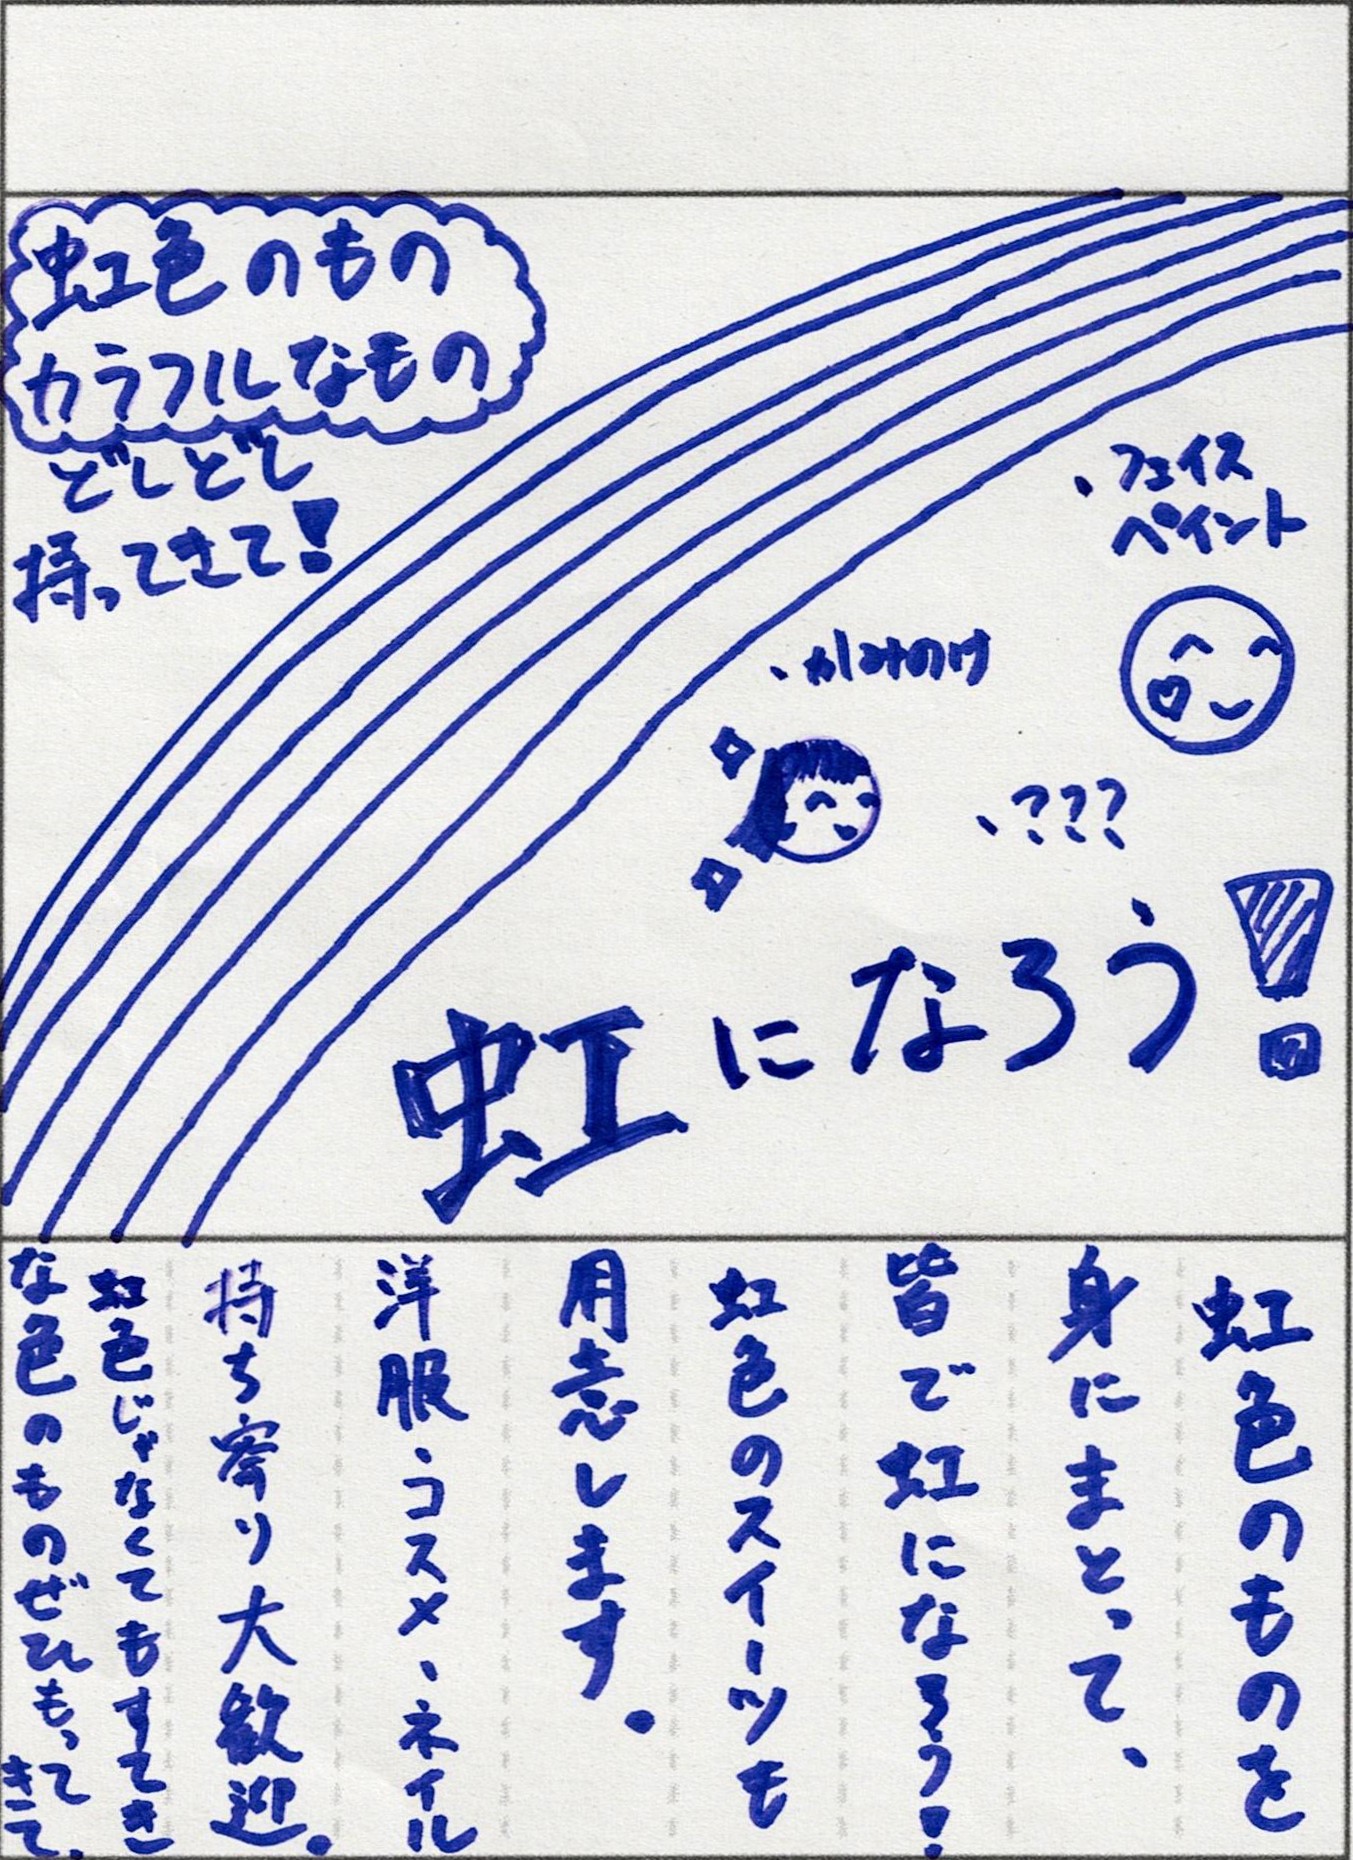 虹色のもの
カラフルなもの
どしどし
持ってきて!
・フェイス
ペイント
・かみのけ
・???
虹になろう!
虹色のものを
身にまとって、
皆で虹になろう!
虹色のスイーツも
用意します。
洋服、コスメ、ネイル
持ち寄り大歓迎。
虹色じゃなくてもすてき
な色のものぜひもってきて。